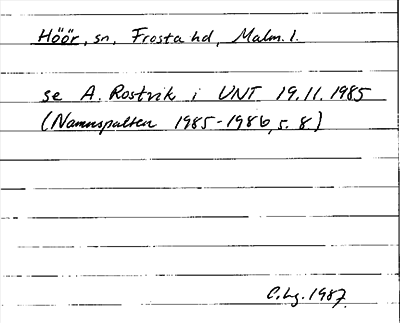 Höör, sn, Frosta hd, Malm. l.
se A. Rostvik i UNT 19.11.1985
(Namnspalten 1985-1986, s. 8)
C. Lg. 1987.